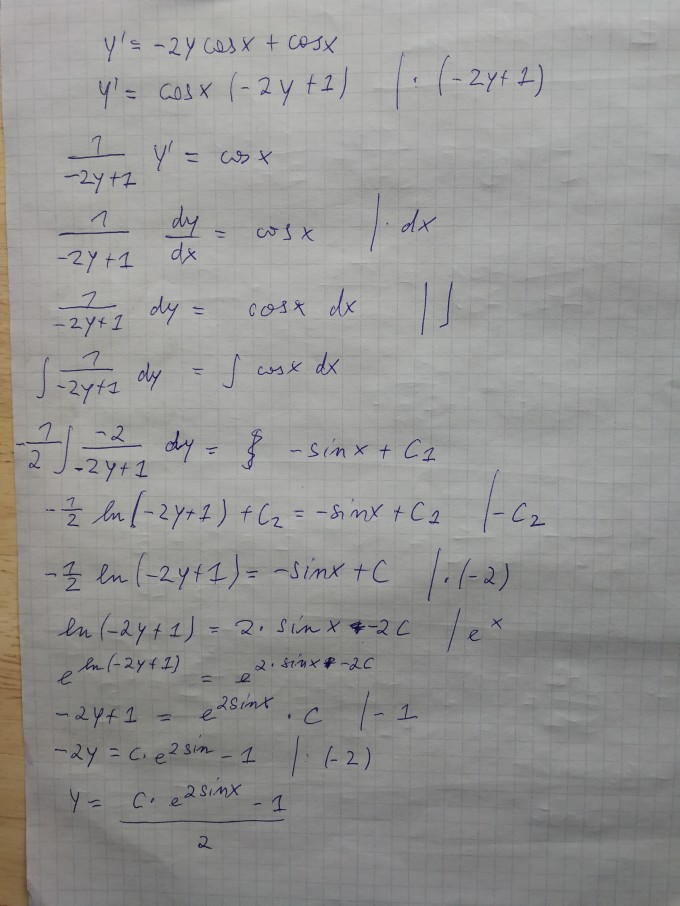 y' = -2y cosx + cosx
y' = cosx (-2y+1) | · (-2y+1)
1/(-2y+1) y' = cosx
1/(-2y+1) dy/dx = cosx | · dx
1/(-2y+1) dy = cosx dx | ∫
∫ 1/(-2y+1) dy = ∫ cosx dx
-1/2 ∫ -2/(-2y+1) dy = -sinx + C1
-1/2 ln(-2y+1) + C2 = -sinx + C1 | - C2
-1/2 ln(-2y+1) = -sinx + C | · (-2)
ln(-2y+1) = 2· sinx -2C | e^x
e^(ln(-2y+1)) = e^(2·sinx -2C)
-2y+1 = e^(2sinx) · C | - 1
-2y = C· e^(2sin) - 1 | : (-2)
y = (C· e^(2sinx) - 1)/2